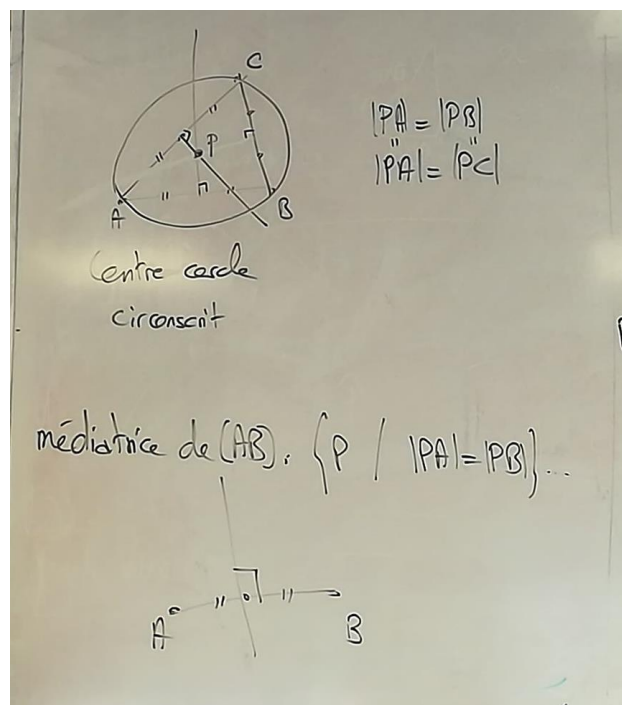 C
P
A
B
|PA| = |PB|
" "
|PA| = |PC|
Centre cercle
circonscrit
médiatrice de (AB). {P / |PA|=|PB|}...
A
B